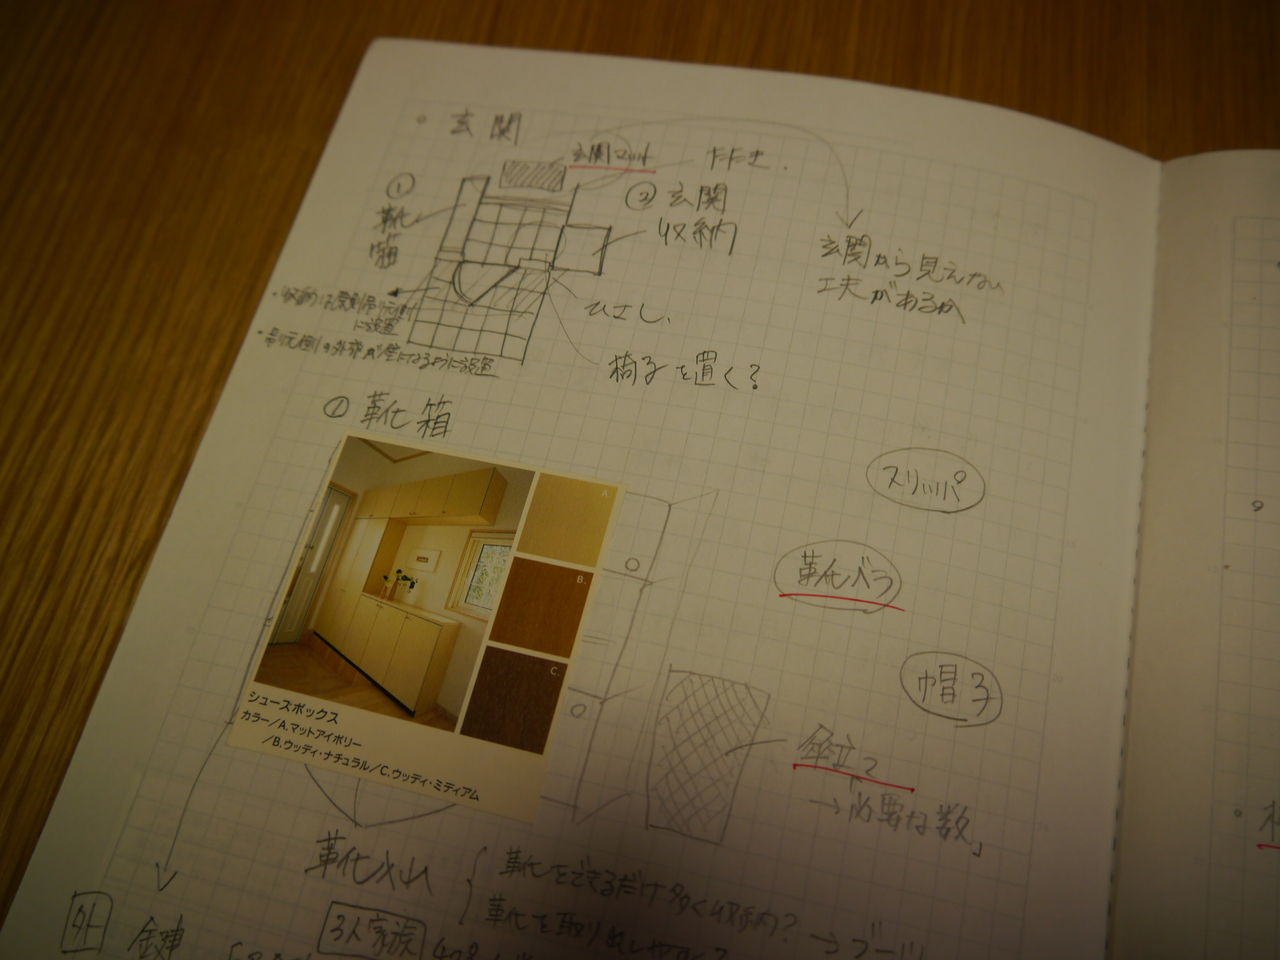 玄関
玄関マット
タタキ.
①
靴
箱
② 玄関
収納
玄関から見えない
工夫があるか
ひさし.
に設置
・吊り元側の外部が壁になるように設置
椅子を置く?
① 靴箱
スリッパ
靴ベラ
帽子
A.
B.
C.
シューズボックス
カラー/A.マットアイボリー
/B.ウッディ・ナチュラル/C.ウッディ・ミディアム
傘立て
→必要な数」
靴
靴をできるだけ多く収納?
靴を取り出しやすく?
→ブーツ
外
鍵
3人家族